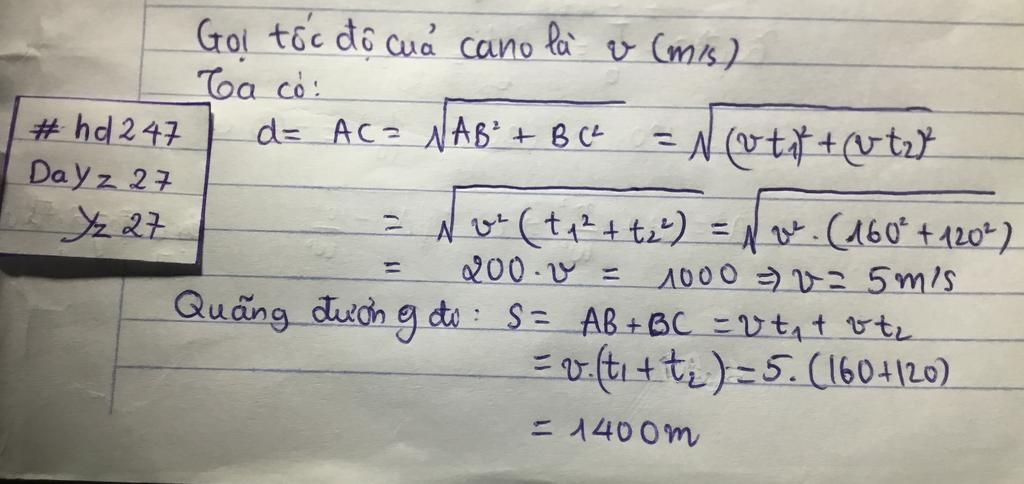 Gọi tốc độ cuả cano là v (m/s)
Ta có:
# hd247
Dayz 27
yz 27
d = AC = √AB² + BC² = √(vt₁)² + (vt₂)²
= √v² (t₁² + t₂²) = √v² . (160² + 120²)
= 200 . v = 1000 ⇒ v = 5 m/s
Quãng đường đó: S = AB + BC = vt₁ + vt₂
= v.(t₁ + t₂) = 5. (160+120)
= 1400m